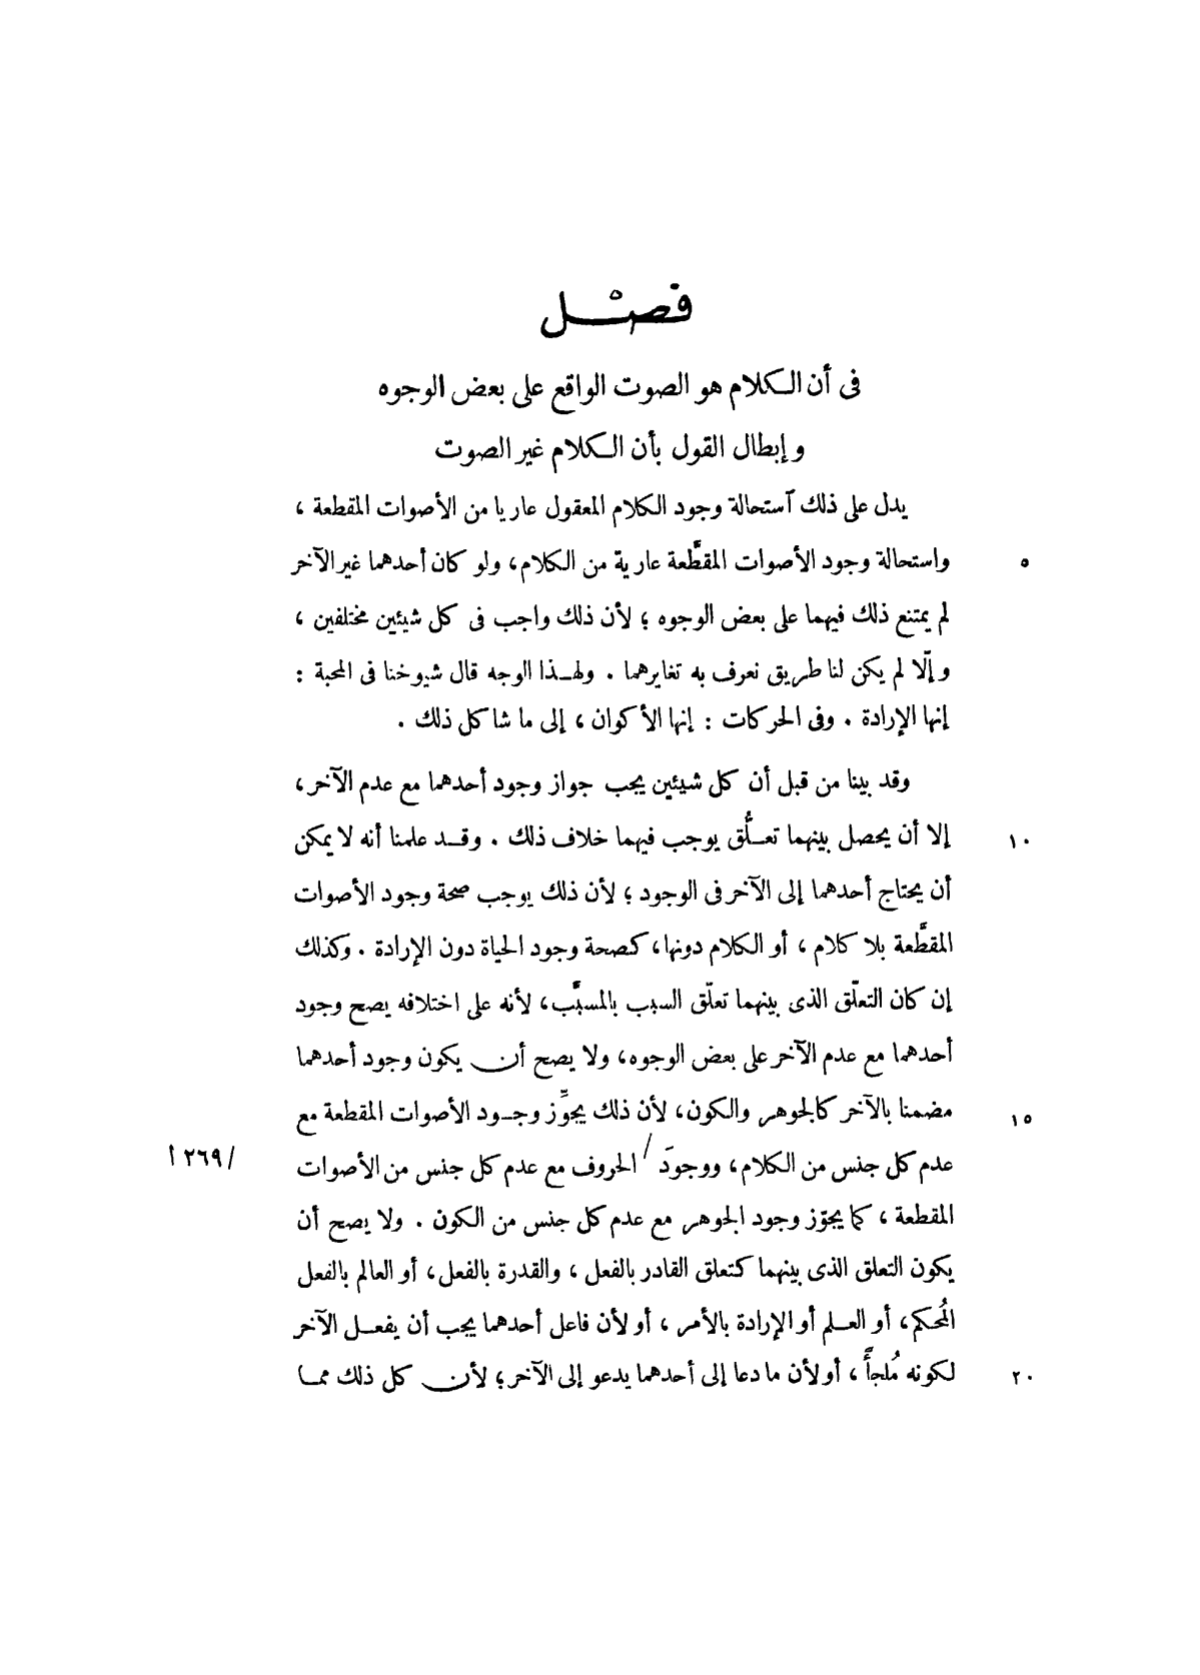 فصْل
فى أن الكلام هو الصوت الواقع على بعض الوجوه
و إبطال القول بأن الكلام غير الصوت
يدل على ذلك ٱستحالة وجود الكلام المعقول عاريا من الأصوات المقطعة ،
٥ واستحالة وجود الأصوات المقطَّعة عارية من الكلام، ولو كان أحدهما غير الآخر
لم يمتنع ذلك فيهما على بعض الوجوه ؛ لأن ذلك واجب فى كل شيئين مختلفين ،
و إلّا لم يكن لنا طريق نعرف به تغايرهما . ولهذا الوجه قال شيوخنا فى المحبة :
إنها الإرادة . وفى الحركات : إنها الأكوان ، إلى ما شاكل ذلك .
وقد بينا من قبل أن كل شيئين يجب جواز وجود أحدهما مع عدم الآخر،
١٠ إلا أن يحصل بينهما تعلُّق يوجب فيهما خلاف ذلك . وقد علمنا أنه لا يمكن
أن يحتاج أحدهما إلى الآخر فى الوجود ؛ لأن ذلك يوجب صحة وجود الأصوات
المقطَّعة بلا كلام ، أو الكلام دونها، كصحة وجود الحياة دون الإرادة . وكذلك
إن كان التعلّق الذى بينهما تعلّق السبب بالمسبَّب، لأنه على اختلافه يصح وجود
أحدهما مع عدم الآخر على بعض الوجوه، ولا يصح أن يكون وجود أحدهما
١٥ مضمنا بالآخر كالجوهر والكون، لأن ذلك يجوِّز وجود الأصوات المقطعة مع
عدم كل جنس من الكلام، ووجودَ / الحروف مع عدم كل جنس من الأصوات /٢٦٩ ا
المقطعة ، كما يجوّز وجود الجوهر مع عدم كل جنس من الكون . ولا يصح أن
يكون التعلق الذى بينهما كتعلق القادر بالفعل ، والقدرة بالفعل، أو العالم بالفعل
المُحكم، أو العلم أو الإرادة بالأمر ، أو لأن فاعل أحدهما يجب أن يفعل الآخر
٢٠ لكونه مُلجأً ، أو لأن ما دعا إلى أحدهما يدعو إلى الآخر؛ لأن كل ذلك مما